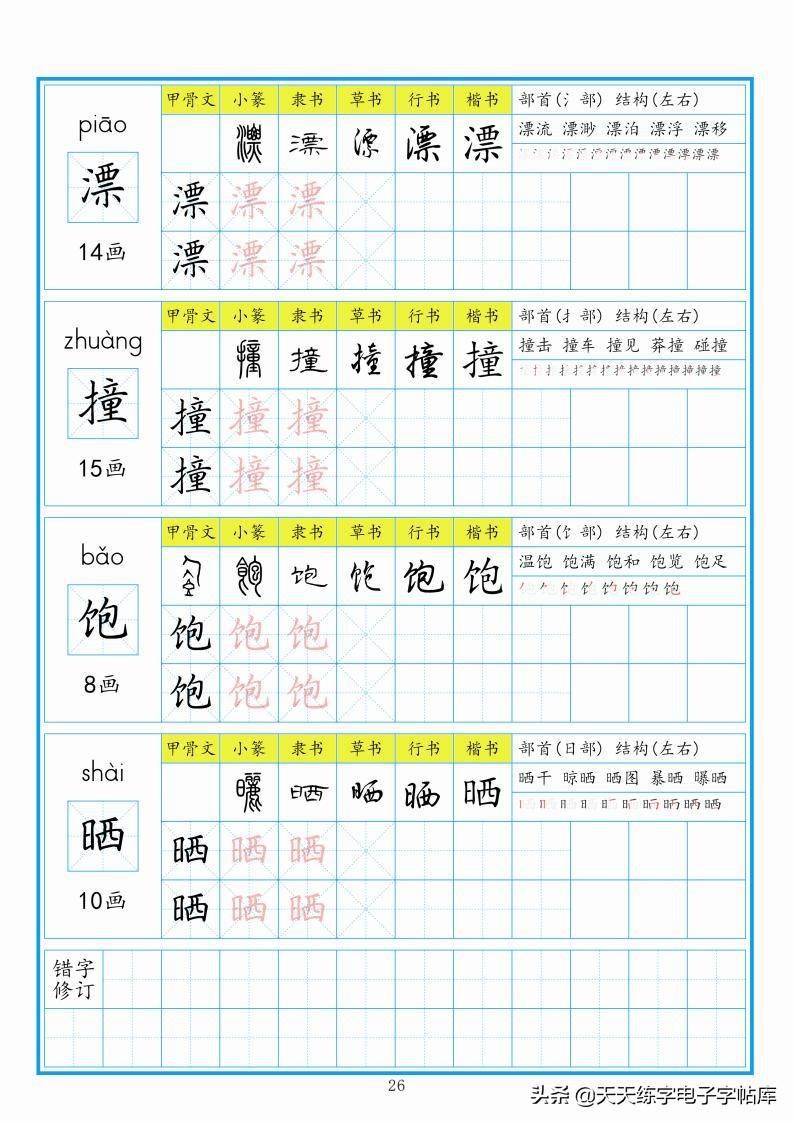 甲骨文 小篆 隶书 草书 行书 楷书 部首(氵部) 结构(左右)
piāo
漂 漂 漂 漂 漂 漂流 漂渺 漂泊 漂浮 漂移
漂
漂 漂 漂
14画
漂 漂 漂
甲骨文 小篆 隶书 草书 行书 楷书 部首(扌部) 结构(左右)
zhuàng
撞 撞 撞 撞 撞 撞击 撞车 撞见 莽撞 碰撞
撞
撞 撞 撞
15画
撞 撞 撞
甲骨文 小篆 隶书 草书 行书 楷书 部首(饣部) 结构(左右)
bǎo
饱 饱 饱 饱 温饱 饱满 饱和 饱览 饱足
饱
饱 饱 饱
8画
饱 饱 饱
甲骨文 小篆 隶书 草书 行书 楷书 部首(日部) 结构(左右)
shài
晒 晒 晒 晒 晒干 晾晒 晒图 暴晒 曝晒
晒
晒 晒 晒
10画
晒 晒 晒
错字
修订
26
头条 @天天练字电子字帖库